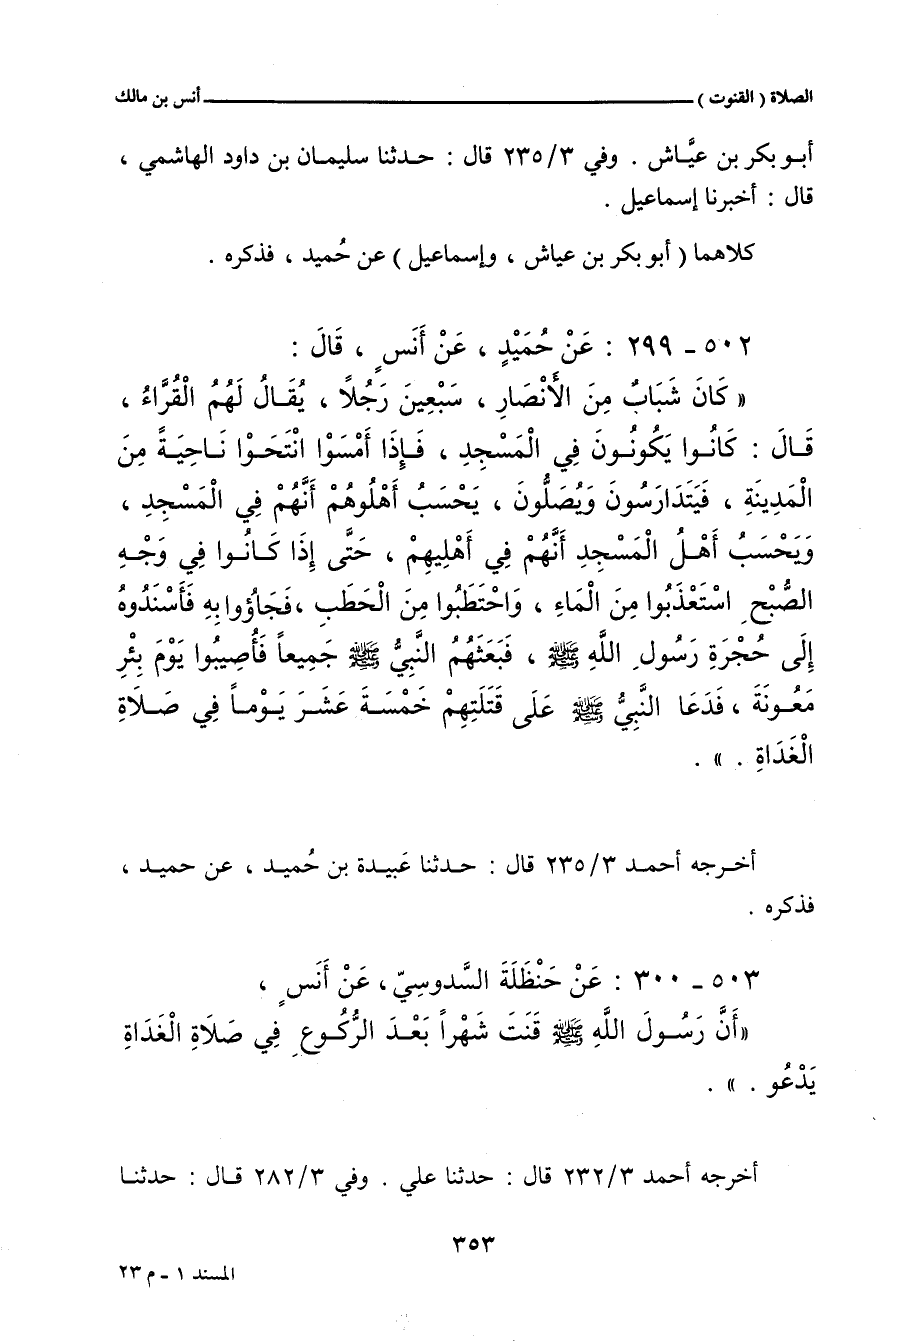 الصلاة ( القنوت ) ــــــــــــــــــــــــ أنس بن مالك
أبو بكر بن عيَّاش . وفي ٢٣٥/٣ قال : حدثنا سليمان بن داود الهاشمي ،
قال : أخبرنا إسماعيل .
كلاهما ( أبو بكر بن عياش ، وإسماعيل ) عن حُميد ، فذكره .
٥٠٢ - ٢٩٩ : عَنْ حُمَيْدٍ ، عَنْ أَنَسٍ ، قَالَ :
« كَانَ شَبَابٌ مِنَ الْأَنْصَارِ ، سَبْعِينَ رَجُلًا ، يُقَالُ لَهُمُ الْقُرَّاءُ ،
قَالَ : كَانُوا يَكُونُونَ فِي الْمَسْجِدِ ، فَإِذَا أَمْسَوْا انْتَحَوْا نَاحِيَةً مِنَ
الْمَدِينَةِ ، فَيَتَدَارَسُونَ وَيُصَلُّونَ ، يَحْسَبُ أَهْلُوهُمْ أَنَّهُمْ فِي الْمَسْجِدِ ،
وَيَحْسَبُ أَهْلُ الْمَسْجِدِ أَنَّهُمْ فِي أَهْلِيهِمْ ، حَتَّى إِذَا كَانُوا فِي وَجْهِ
الصُّبْحِ اسْتَعْذَبُوا مِنَ الْمَاءِ ، وَاحْتَطَبُوا مِنَ الْحَطَبِ ، فَجَاؤُوا بِهِ فَأَسْنَدُوهُ
إِلَى حُجْرَةِ رَسُولِ اللَّهِ ﷺ ، فَبَعَثَهُمُ النَّبِيُّ ﷺ جَمِيعاً فَأُصِيبُوا يَوْمَ بِئْرِ
مَعُونَةَ ، فَدَعَا النَّبِيُّ ﷺ عَلَى قَتَلَتِهِمْ خَمْسَةَ عَشَرَ يَوْماً فِي صَلَاةِ
الْغَدَاةِ . » .
أخرجه أحمد ٢٣٥/٣ قال : حدثنا عَبيدة بن حُميد ، عن حميد ،
فذكره .
٥٠٣ - ٣٠٠ : عَنْ حَنْظَلَةَ السَّدوسِيّ ، عَنْ أَنَسٍ ،
« أَنَّ رَسُولَ اللَّهِ ﷺ قَنَتَ شَهْراً بَعْدَ الرُّكُوعِ فِي صَلَاةِ الْغَدَاةِ
يَدْعُو . » .
أخرجه أحمد ٢٣٢/٣ قال : حدثنا علي . وفي ٢٨٢/٣ قال : حدثنا
٣٥٣
المسند ١ - م ٢٣